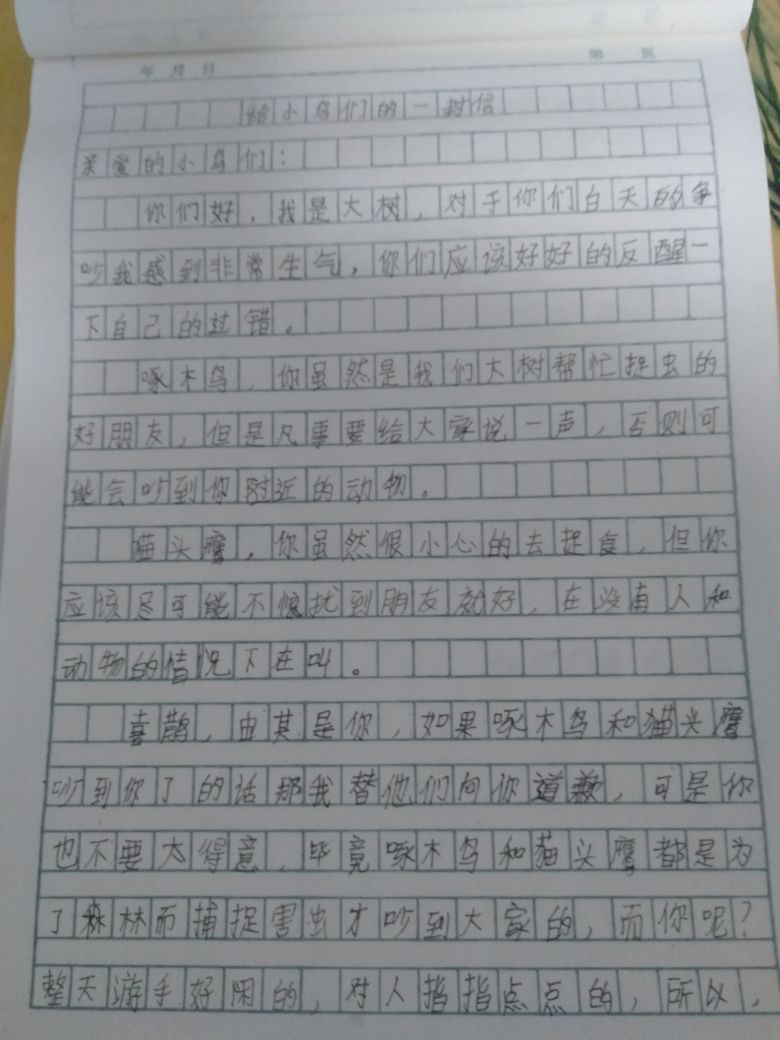 年 月 日 第 页
给小鸟们的一封信
亲爱的小鸟们：
你们好，我是大树，对于你们白天的争
吵我感到非常生气，你们应该好好的反醒一
下自己的过错。
啄木鸟，你虽然是我们大树帮忙捉虫的
好朋友，但是凡事要给大家说一声，否则可
能会吵到你附近的动物。
猫头鹰，你虽然很小心的去捉食，但你
应该尽可能不惊扰到朋友就好，在没有人和
动物的情况下在叫。
喜鹊，由其是你，如果啄木鸟和猫头鹰
吵到你了的话那我替他们向你道歉，可是你
也不要太得意，毕竟啄木鸟和猫头鹰都是为
了森林而捕捉害虫才吵到大家的，而你呢？
整天游手好闲的，对人指指点点的，所以，